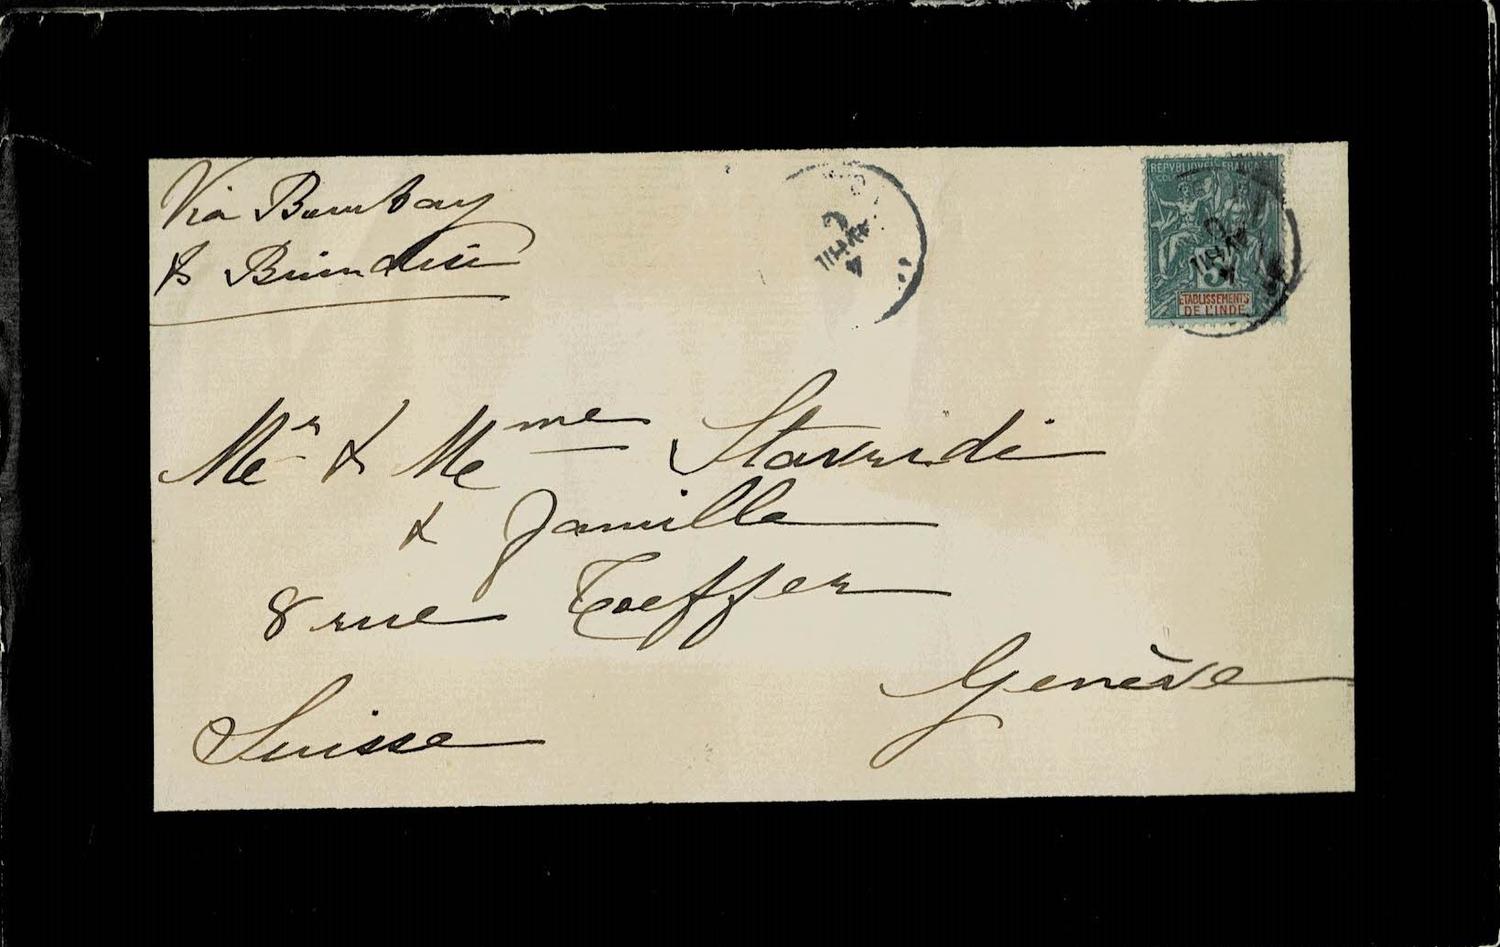 Via Bombay
& Brindisi
REPUBLIQUE FRANÇAISE
5
ETABLISSEMENTS
DE L'INDE
Mr & Mme Stavridi
& famille
8 rue Toeffer
Genève
Suisse